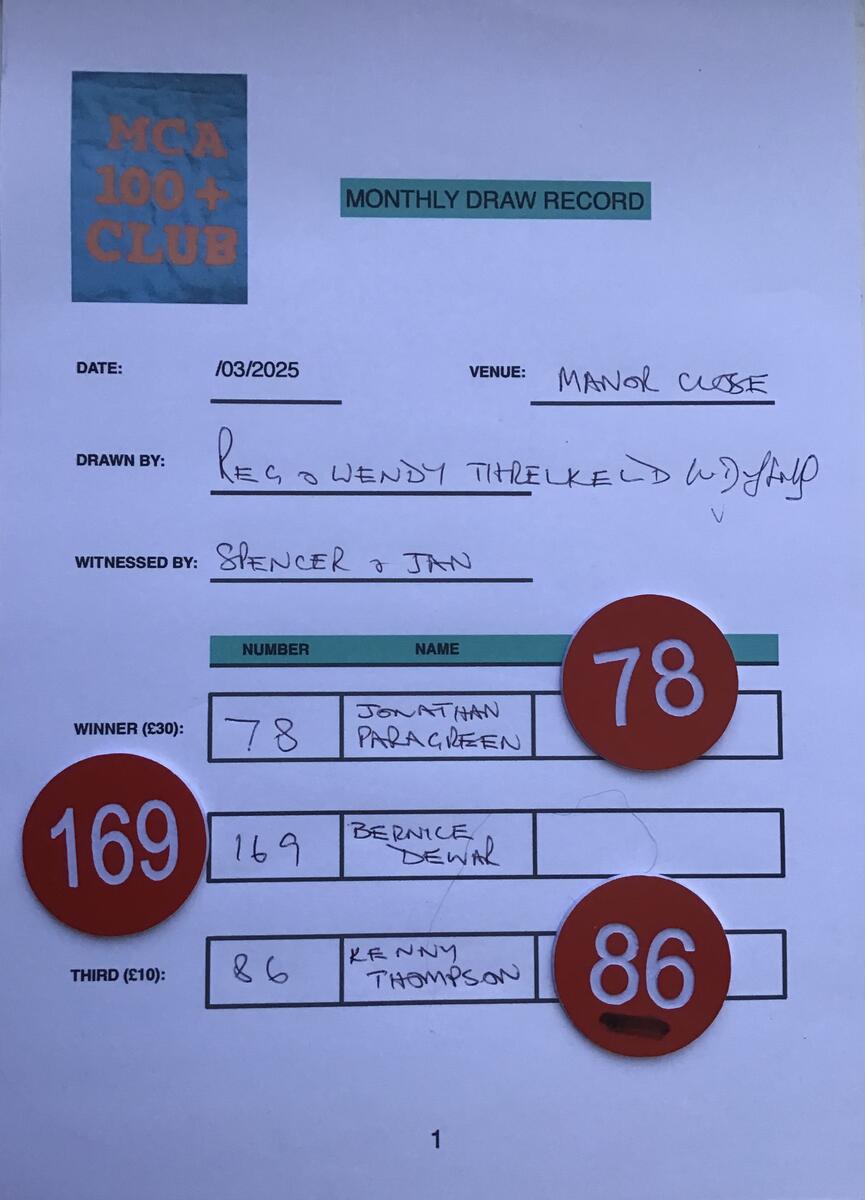 MCA
100+
CLUB
MONTHLY DRAW RECORD
DATE: /03/2025 VENUE: MANOR CLOSE
DRAWN BY: REG & WENDY THRELKELD
WITNESSED BY: SPENCER & JAN
NUMBER NAME
78
WINNER (£30): 78 JONATHAN
PARAGREEN
169
169 BERNICE
DEWAR
THIRD (£10): 86 KENNY
THOMPSON
86
1